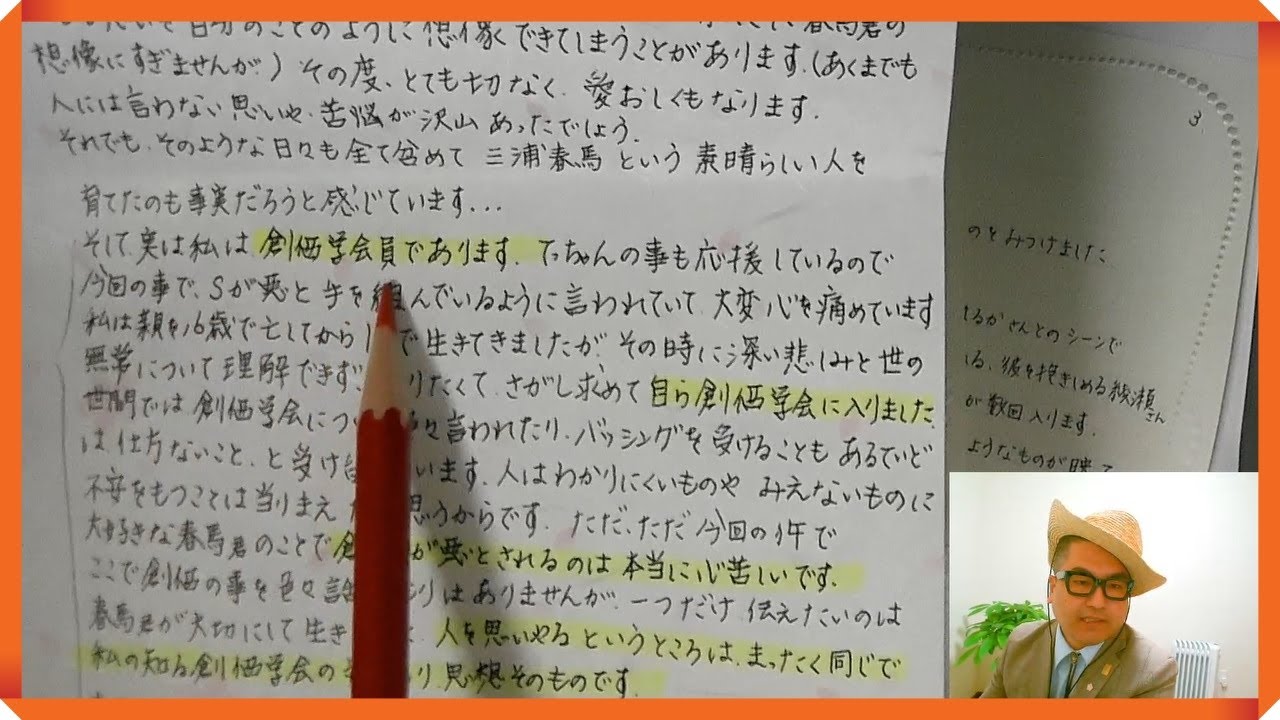 自分のことのように想像できてしまうことがあります.(あくまでも
想像にすぎませんが.)その度、とても切なく、愛おしくもなります.
人には言わない思いや、苦悩が沢山あったでしょう.
それでも、そのような日々も全て含めて 三浦春馬 という 素晴らしい人を
育てたのも事実だろうと感じています...
そして、実は私は 創価学会員であります. てっちゃんの事も応援しているので
今回の事で、Sが悪と手を組んでいるように言われていて、大変心を痛めています
私は親を16歳で亡してから で生きてきましたが、その時に深い悲しみと世の
無常について理解できず りたくて、さがし求めて 自ら創価学会に入りました
世間では、創価学会につ 言われたり、バッシングを受けることも あるていど
は仕方ないこと、と受け います. 人はわかりにくいものや みえないものに
不安をもつことは当りまえ 思うからです. ただ、ただ 今回の件で
大好きな春馬君のことで が悪とされるのは 本当に心苦しいです.
ここで創価の事を色々 りはありませんが、一つだけ 伝えたいのは
春馬君が大切にして生き 人を思いやる というところは、まったく同じで
私の知る創価学会の り、思想そのものです.
3
のをみつけました
はるかさんとのシーンで
いる、彼を抱きしめる綾瀬さん
が数回入ります.
ようなものが映って